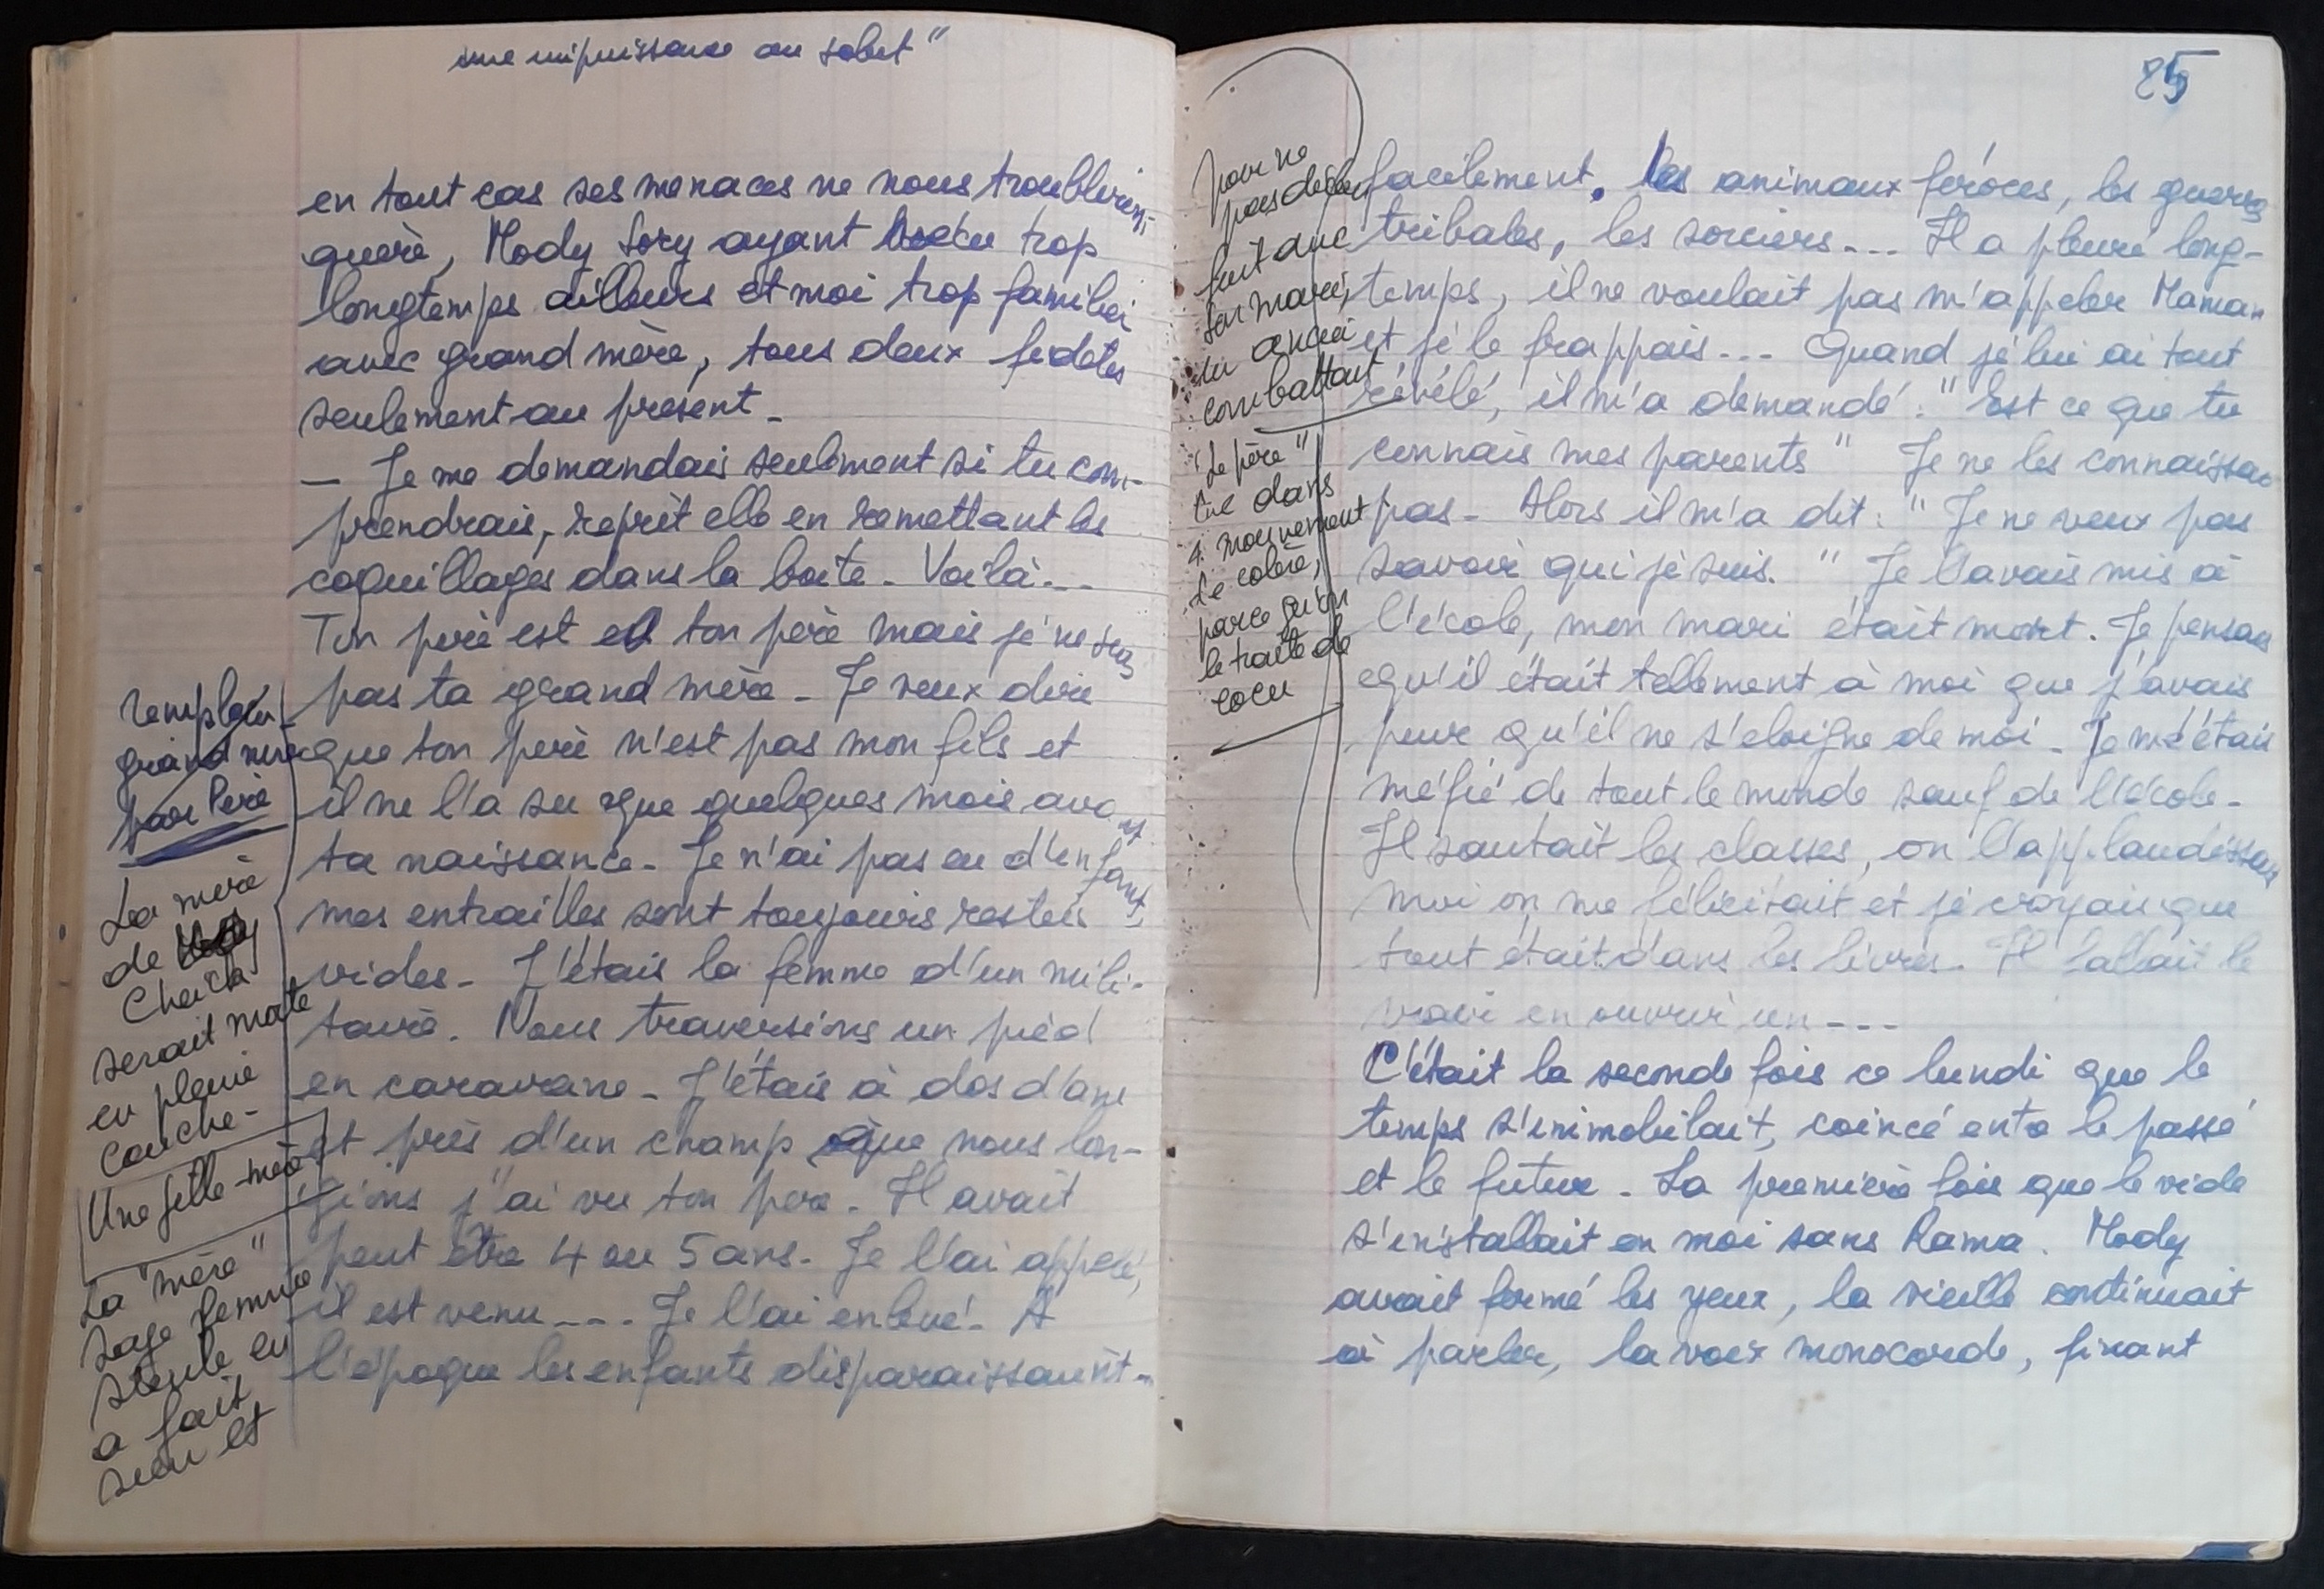 une impuissance au salut"
en tout cas ses menaces ne nous troublèrent
guère, Mody Sory ayant vécu trop
longtemps ailleurs et moi trop familier
avec grand mère, tous deux fidèles
seulement au présent _
_ Je me demandais seulement si tu com-
prendrais, reprit elle en remettant les
coquillages dans la boite _ Voilà ...
Ton père est ton père mais je ne suis
pas ta grand mère _ Je veux dire
que ton père n'est pas mon fils et
il ne l'a su que quelques mois avant
ta naissance _ Je n'ai pas eu d'enfants,
mes entrailles sont toujours restées
vides _ J'étais la femme d'un mili-
taire. Nous traversions un pied
en caravane _ J'étais à dos d'ane
et près d'un champ que nous lon-
gions j'ai vu ton père _ Il avait
peut être 4 ou 5 ans _ Je l'ai appelé,
il est venu _ _ _ . Je l'ai enlevé _ A
l'époque les enfants disparaissaient _
remplacer
grand mère
par Père
La mère
de
Cheick
serait morte
en pleine
couche _
Une fille-mère
La "mère"
sage femme
stérile en
a fait
sien et
25
pour ne
pas
fuit avec
son mari,
un ancien
combattant
"Le père"
tué dans
1 mouvement
de colère,
parce qu'on
le traite de
cocu
facilement. les animaux féroces, les guerres
tribales, les sorciers _ _ _ Il a pleuré long-
temps, il ne voulait pas m'appeler Maman
et je le frappais _ _ _ Quand je lui ai tout
révélé, il m'a demandé : "Est ce que tu
connais mes parents" Je ne les connaissais
pas _ Alors il m'a dit : "Je ne veux pas
savoir qui je suis. " Je l'avais mis à
l'école, mon mari était mort. Je pensais
qu'il était tellement à moi que j'avais
peur qu'il ne s'éloigne de moi _ Je m'étais
méfié de tout le monde sauf de l'école _
Il sautait les classes, on l'applaudissait
moi on me félicitait et je croyais que
tout était dans les livres _ Il fallait le
voir en ouvrir un _ _ _
C'était la seconde fois ce lundi que le
temps s'immobilait, coincé entre le passé
et le futur _ La première fois que le vide
s'installait en moi sans Rama. Mody
avait fermé les yeux, la vieille continuait
à parler, la voix monocorde, fixant